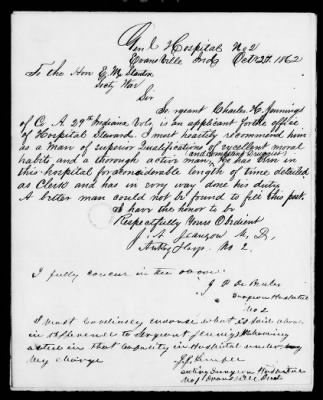 Genl Hospital No 2
Evansville Ind Oct 27th 1862
To the Hon E. M. Stanton
Secty War
Sir
Sergeant Charles H. Jennings
of Co A. 29th Indiana Vols, is an applicant for the office
of Hospital Steward. I most heartily recommend him
as a man of superior qualifications of excellent moral
habits and a thorough active man, (and competent Druggist) He has been in
this hospital for considerable length of time detailed
as Clerk and has in every way done his duty
A better man could not be found to fill this post.
I have the honor to be
Respectfully Yours Obedient
J. A. M. D.
No 2.
I fully concur in the above.
J. P. De
Surgeon
No 2
I most endorse what is said above
in reference to Sergeant Jennings having
acted in that capacity in Hospital under
my charge
Acting Surgeon Hospital
No 1 Evansville Ind